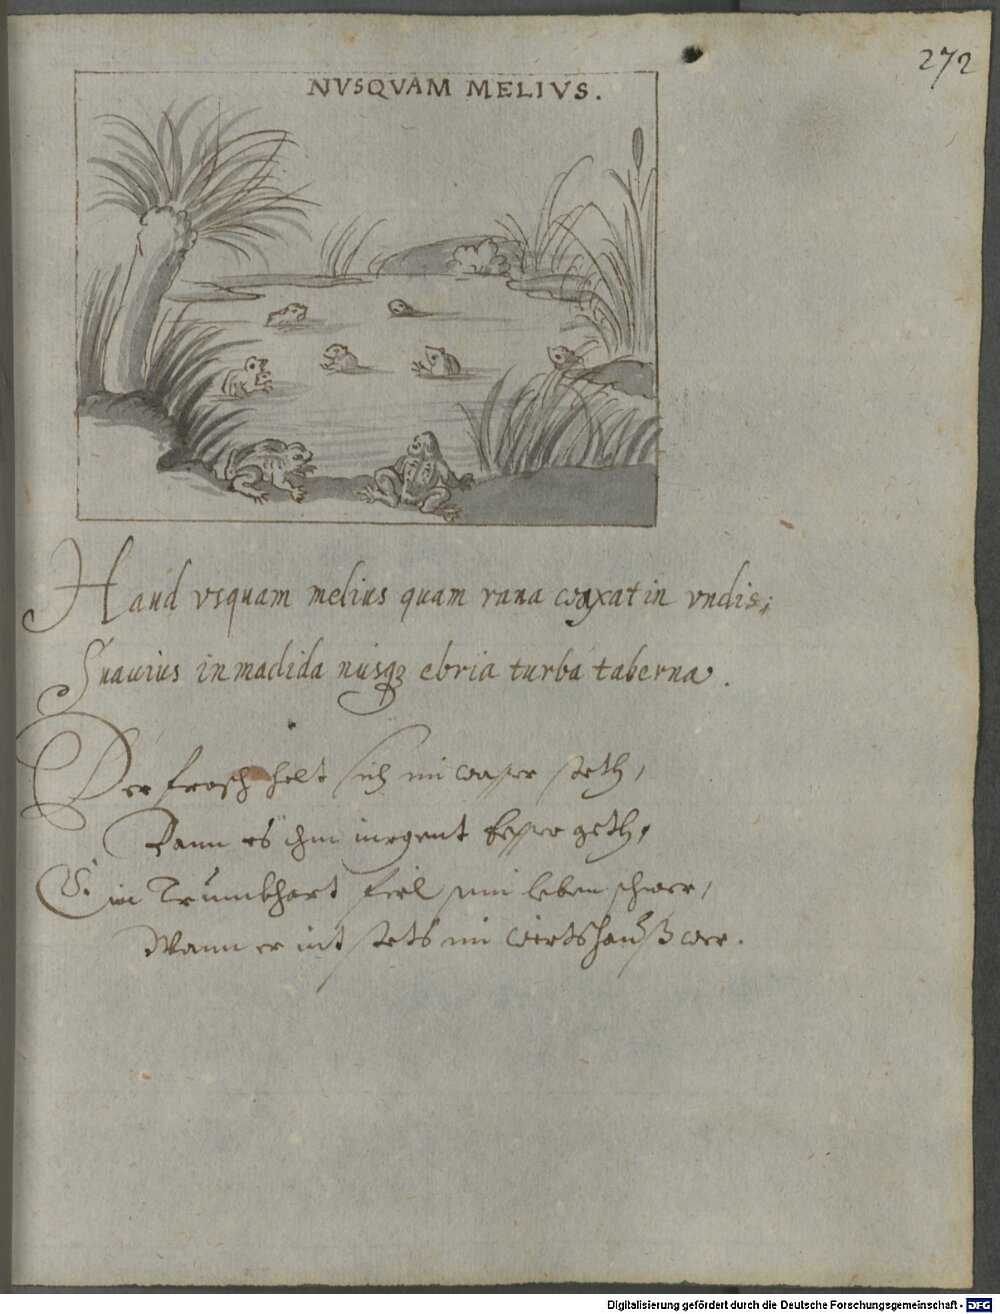 272
NVSQVAM MELIVS.
Haud vsquam melius quam rana coaxat in vndis;
Suauius in madida nusqȝ ebria turba taberna.
Der frosch helt sich im wasser steth,
Dann es ihm niergent besser geth,
Ein Trunkhart fiel sein leben schwer,
Wann er nit stets im wirtshauß wer.
Digitalisierung gefördert durch die Deutsche Forschungsgemeinschaft - DFG